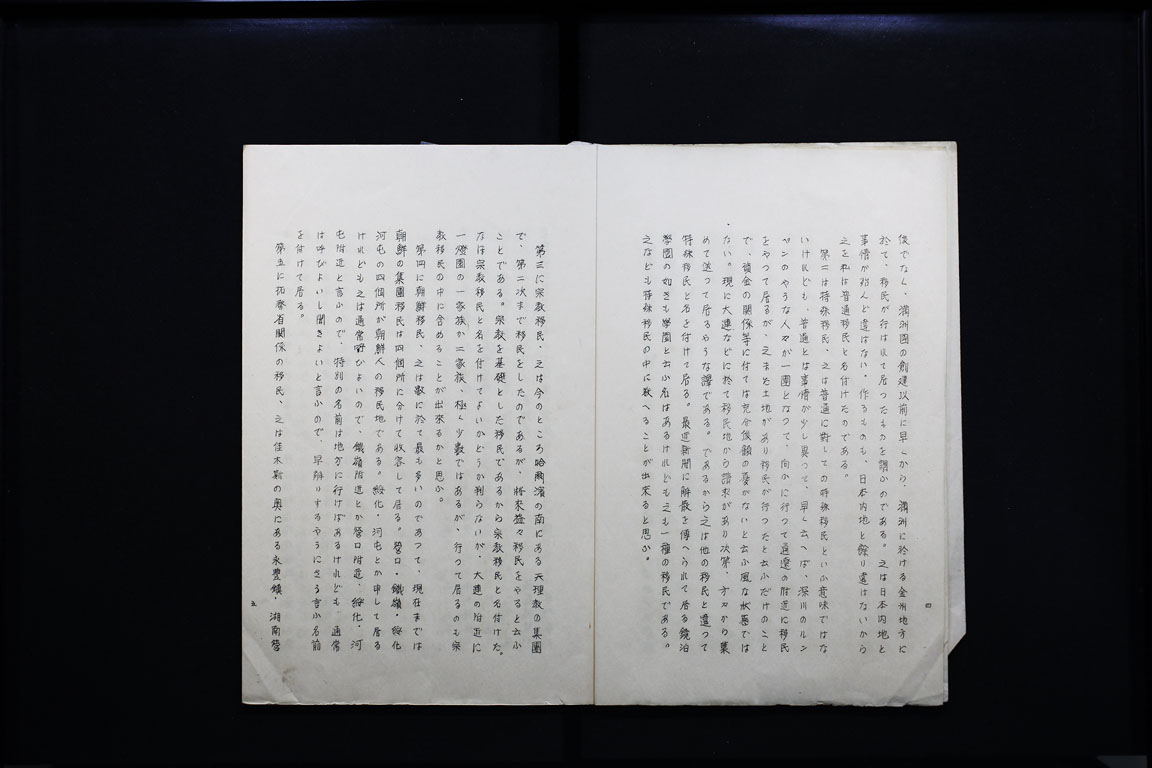 後でなく、満洲國の創建以前に早くから、満洲に於ける金州地方に
於て、移民が行はれて居つたものを謂ふのである。之は日本内地と
事情が殆んど違はない。作るものも、日本内地と餘り違はないから
之を私は普通移民と名付けたのである。
第二は特殊移民、之は普通に對しての特殊移民といふ意味ではな
いけれども、普通とは事情が少し異つて、早く云へば、深川のルン
ペンのやうな人々が一團となつて、向ふに行つて通遼の附近に移民
をやつて居るが、之また土地があり移民が行つたと云ふだけのこと
で、資金の關係等に付ては充分後顧の憂がないと云ふ風な状態では
ない。現に大連などに於て移民地から請求があり次第、方々から集
めて送つて居るやうな譯である。であるから之は他の移民と違つて
特殊移民と名を付けて居る。最近新聞に解散を傳へられて居る鏡泊
學園の如きも學園と云ふ名はあるけれども之も一種の移民である。
之なども特殊移民の中に数へることが出來ると思ふ。
四
第三に宗教移民、之は今のところ哈爾濱の南にある天理教の集團
で、第二次まで移民をしたのであるが、将來益々移民をやると云ふ
ことである。宗教を基礎とした移民であるから宗教移民と名付けた。
なほ宗教移民と名を付けてよいかどうか判らないが、大連の附近に
一燈園の一家族か二家族、極く少数ではあるが、行つて居るのも宗
教移民の中に含めることが出來るかと思ふ。
第四に朝鮮移民、之は数に於て最も多いのであつて、現在までは
朝鮮の集團移民は四個所に分けて收容して居る。營口・鐵嶺・綏化
河屯の四個所が朝鮮人の移民地である。綏化・河屯とか申して居る
けれども之は通常呼びよいので、鐵嶺附近とか營口附近、綏化・河
屯附近と言ふので、特別の名前は地方に行けばあるけれども、通常
は呼びよいし聞きよいと言ふので、早解りするやうにさう言ふ名前
を付けて居る。
第五に拓務省關係の移民、之は佳木斯の奥にある永豊鎮・湖南營
五